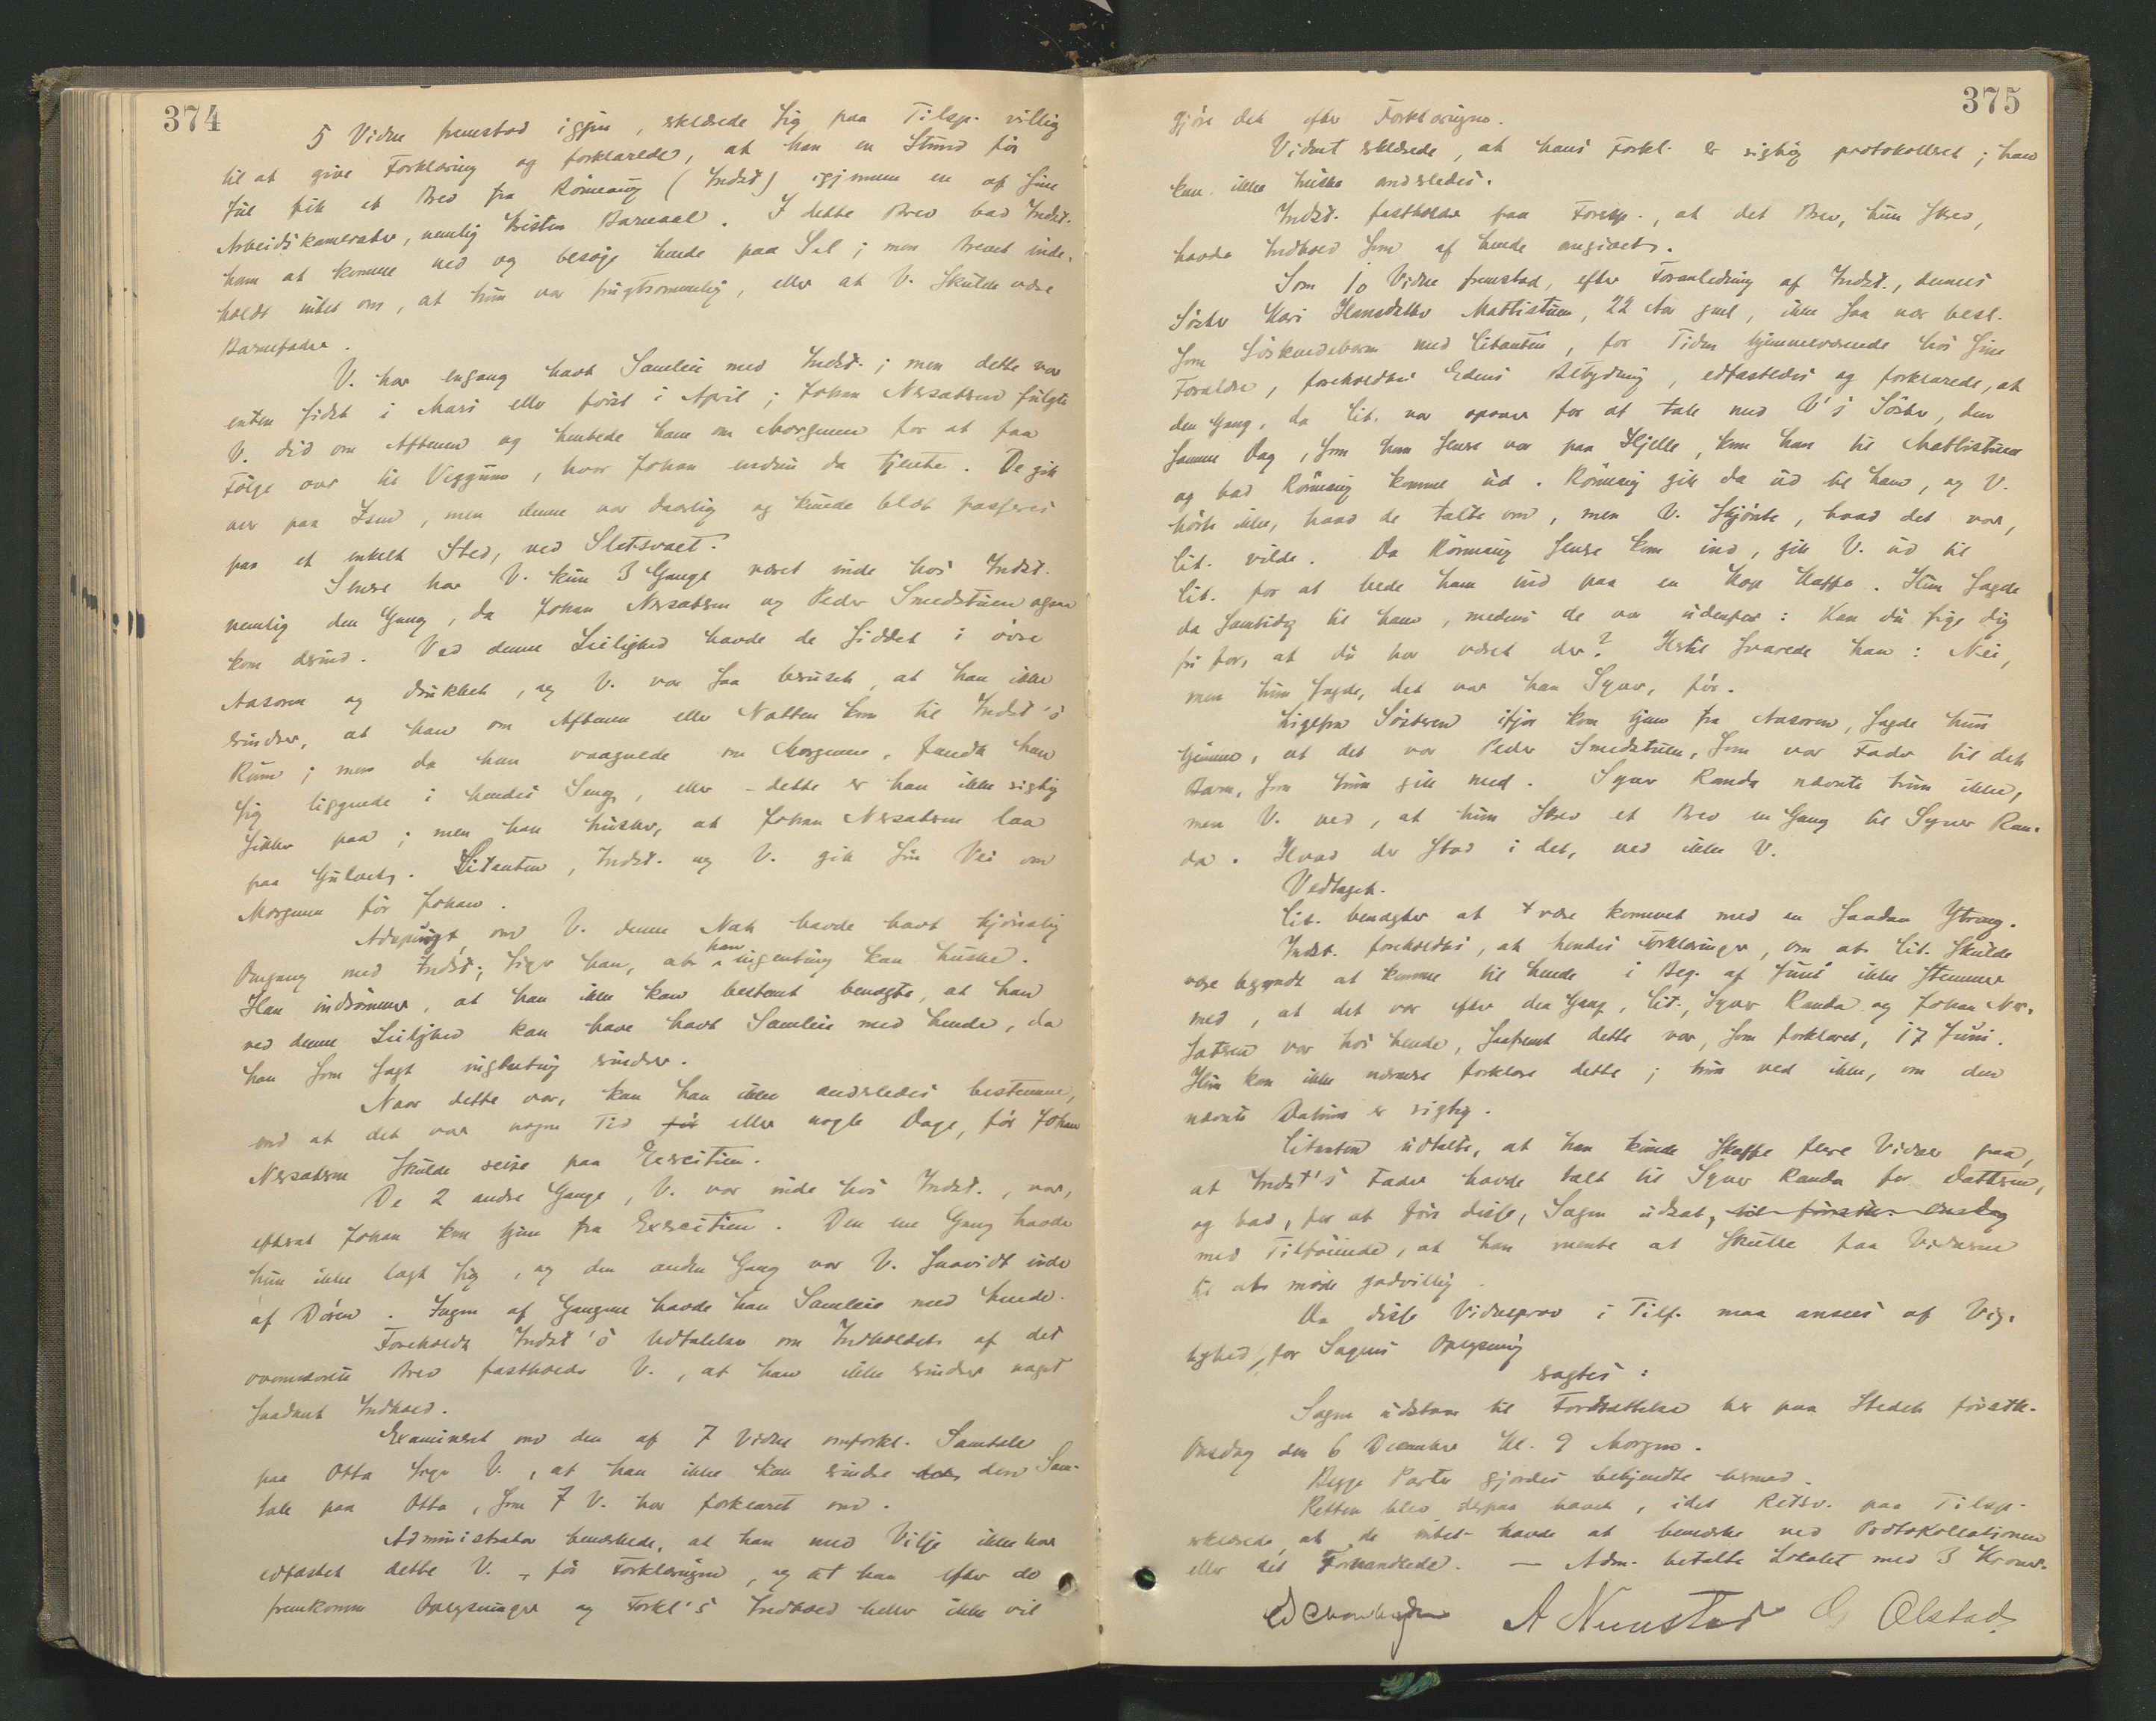 374
5 Vidne fremstod igjen, erklærede sig paa Tilsp. villig
til at give Forklaring og forklarede, at han en Stund før
Jul fik et Brev fra Rønnaug (Indst) igjennem en af sine
Arbeidskamerater, nemlig Kristen Barnaal. I dette Brev bad Indst.
ham at komme ned og besøge hende paa Sel; men Brevet inde-
holdt intet om, at hun var frugtsommelig, eller at V. skulde være
Barnefader.
V. har engang havt Samleie med Indst.; men dette var
enten sidst i Mars eller først i April; Johan Nersatren fulgte
V. did om Aftenen og hentede ham om Morgenen for at faa
Følge over til Veggum, hvor Johan endnu da tjente. De gik
over paa Isen, men denne var daarlig og kunde blot passeres
paa et enkelt Sted, ved Sletsvaet.
Senere har V. kun 3 Gange været inde hos Indst.
nemlig den Gang, da Johan Nersatren og Peder Smedstuen ogsaa
kom derind. Ved denne Leilighed havde de siddet i øvre
Aasoren og drukket, og V. var saa beruset, at han ikke
erindrer, at han om Aftenen eller Natten kom til Indst's
Rum; men da han vaagnede om Morgenen, fandt han
sig liggende i hendes Seng, eller – dette er han ikke rigtig
sikker paa; men han husker, at Johan Nersatren laa
paa Gulvet. Citanten, Indst. og V. gik sin Vei om
Morgenen før Johan.
Adspurgt, om V. denne Nat havde havt kjønslig
Omgang med Indst; siger han, at han ingenting kan huske.
Han indrømmer, at han ikke kan bestemt benægte, at han
ved denne Leilighed kan have havt Samleie med hende, da
han som sagt ingenting erindrer.
Naar dette var, kan han ikke anderledes bestemme,
end at det var nogen Tid før eller nogle Dage, før Johan
Nersatren skulde reise paa Exercitien.
De 2 andre Gange, V. var inde hos Indst., var,
efterat Johan kom hjem fra Exercitien. Den ene Gang havde
hun ikke lagt sig, og den anden Gang var V. saavidt inde
af Døren. Ingen af Gangene havde han Samleie med hende.
Foreholdt Indst's Udtalelse om Indholdet af det
ovennævnte Brev fastholder V., at han ikke erindrer noget
saadant Indhold.
Examineret om den af 7 Vidne omforkl. Samtale
paa Otta siger V., at han ikke kan erindre den Sam-
tale paa Otta, som 7 V. har forklaret om.
Administrator bemerkede, at han med Vilje ikke har
edfæstet dette V. før Forklaringen, og at han efter de
fremkomne Oplysninger og Forkl's Indhold heller ikke vil
375
gjøre det efter Forklaringen.
Vidnet erklærede, at hans Forkl. er rigtig protokolleret; han
kan ikke huske anderledes.
Indst. fastholder paa Foresp., at det Brev, hun skrev,
havde Indhold som af hende angivet.
Som 10 Vidne fremstod, efter Foranledning af Indst., dennes
Søster Kari Hansdatter Mattistuen, 22 Aar gml, ikke saa nær besl.
som Søskendebarn med Citanten, for Tiden hjemmeværende hos sine
Forældre, foreholdtes Edens Betydning, edfæstedes og forklarede, at
den Gang, da Cit. var opover for at tale med V's Søster, den
samme Dag, som han senere var paa Hjelle, kom han til Mattistuen
og bad Rønnaug komme ud. Rønnaug gik da ud til ham, og V.
hørte ikke, hvad de talte om, men V. skjønte, hvad det var,
Cit. vilde. Da Rønnaug senere kom ind, gik V. ud til
Cit. for at bede ham ind paa en Kop Kaffe. Hun sagde
da samtidig til ham, medens de var udenfor: Kan du sige dig
fri for, at du har været der? Hertil svarede han: Nei,
men hun sagde, det var han Syver, før.
Ligefra Søsteren ifjor kom hjem fra Aasoren, sagde hun
hjemme, at det var Peder Smedstuen, som var Fader til det
Barn, som hun gik med. Syver Randa nævnte hun ikke,
men V. ved, at hun skrev et Brev en Gang til Syver Ran-
da. Hvad der stod i det, ved ikke V.
Vedtaget.
Cit. benægter at være kommet med en saadan Ytring.
Indst. foreholdtes, at hendes Forklaringer, om at Cit. skulde
være begyndt at komme til hende i Beg. af Juni ikke stemmer
med, at det var efter den Gang, Cit., Syver Randa og Johan Ner-
satren var hos hende, saafremt dette var, som forklaret, 17 Juni.
Hun kan ikke nærmere forklare dette; hun ved ikke, om den
nævnte Datum er rigtig.
Citanten udtalte, at han kunde skaffe flere Vidner paa,
at Indst's Fader havde talt til Syver Randa for Datteren,
og bad, for at føre disse, Sagen udsat, til førstk. Onsdag
med Tilføiende, at han mente at skulle faa Vidnerne
til at møde godvillig.
Da disse Vidneprov i Tilf. maa ansees af Vig-
tighed for Sagens Oplysning
sagtes:
Sagen udstaar til Fortsættelse her paa Stedet førstk.
Onsdag den 6 December Kl. 9 Morgen.
Begge Parter gjordes bekjendte hermed.
Retten blev derpaa hævet, idet Retsv. paa Tilsp.
erklærede, at de intet havde at bemerke ved Protokollationen
eller det Forhandlede. — Adm. betalte Lokalet med 3 Kroner.
A Nunstad O Olstad